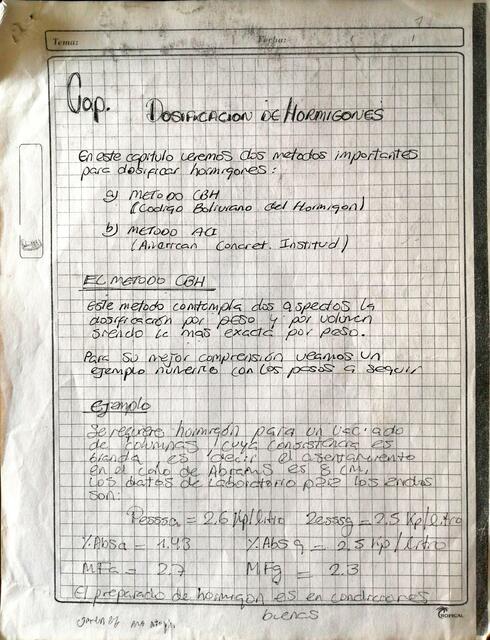 Tema:
Fecha:
Cap. DOSIFICACION DE HORMIGONES
En este capitulo veremos dos metodos importantes
para dosificar hormigones:
a) METODO CBH
(Codigo Boliviano del Hormigon)
b) METODO ACI
(American Concret. Institud)
EL METODO CBH
Este metodo comtempla dos aspectos la
dosificación por peso y por volumen
siendo la mas exacta por peso.
Para su mejor comprensión veamos un
ejemplo numerico con los pasos a seguir
ejemplo
Se requiere hormigon para un vaciado
de columnas cuya consistencia es
blanda es decir el asentamiento
en el cono de Abrams es 8 cm.
Los datos de Laboratorio para los
son:
= 2.6 Kp/litro = 2.5 Kp/litro
% Abs a = 1.43 % Abs g = 2.5 Kp/litro
MFa = 2.7 MFg = 2.3
El preparado de hormigon es en condiciones
buenas
TROPICAL